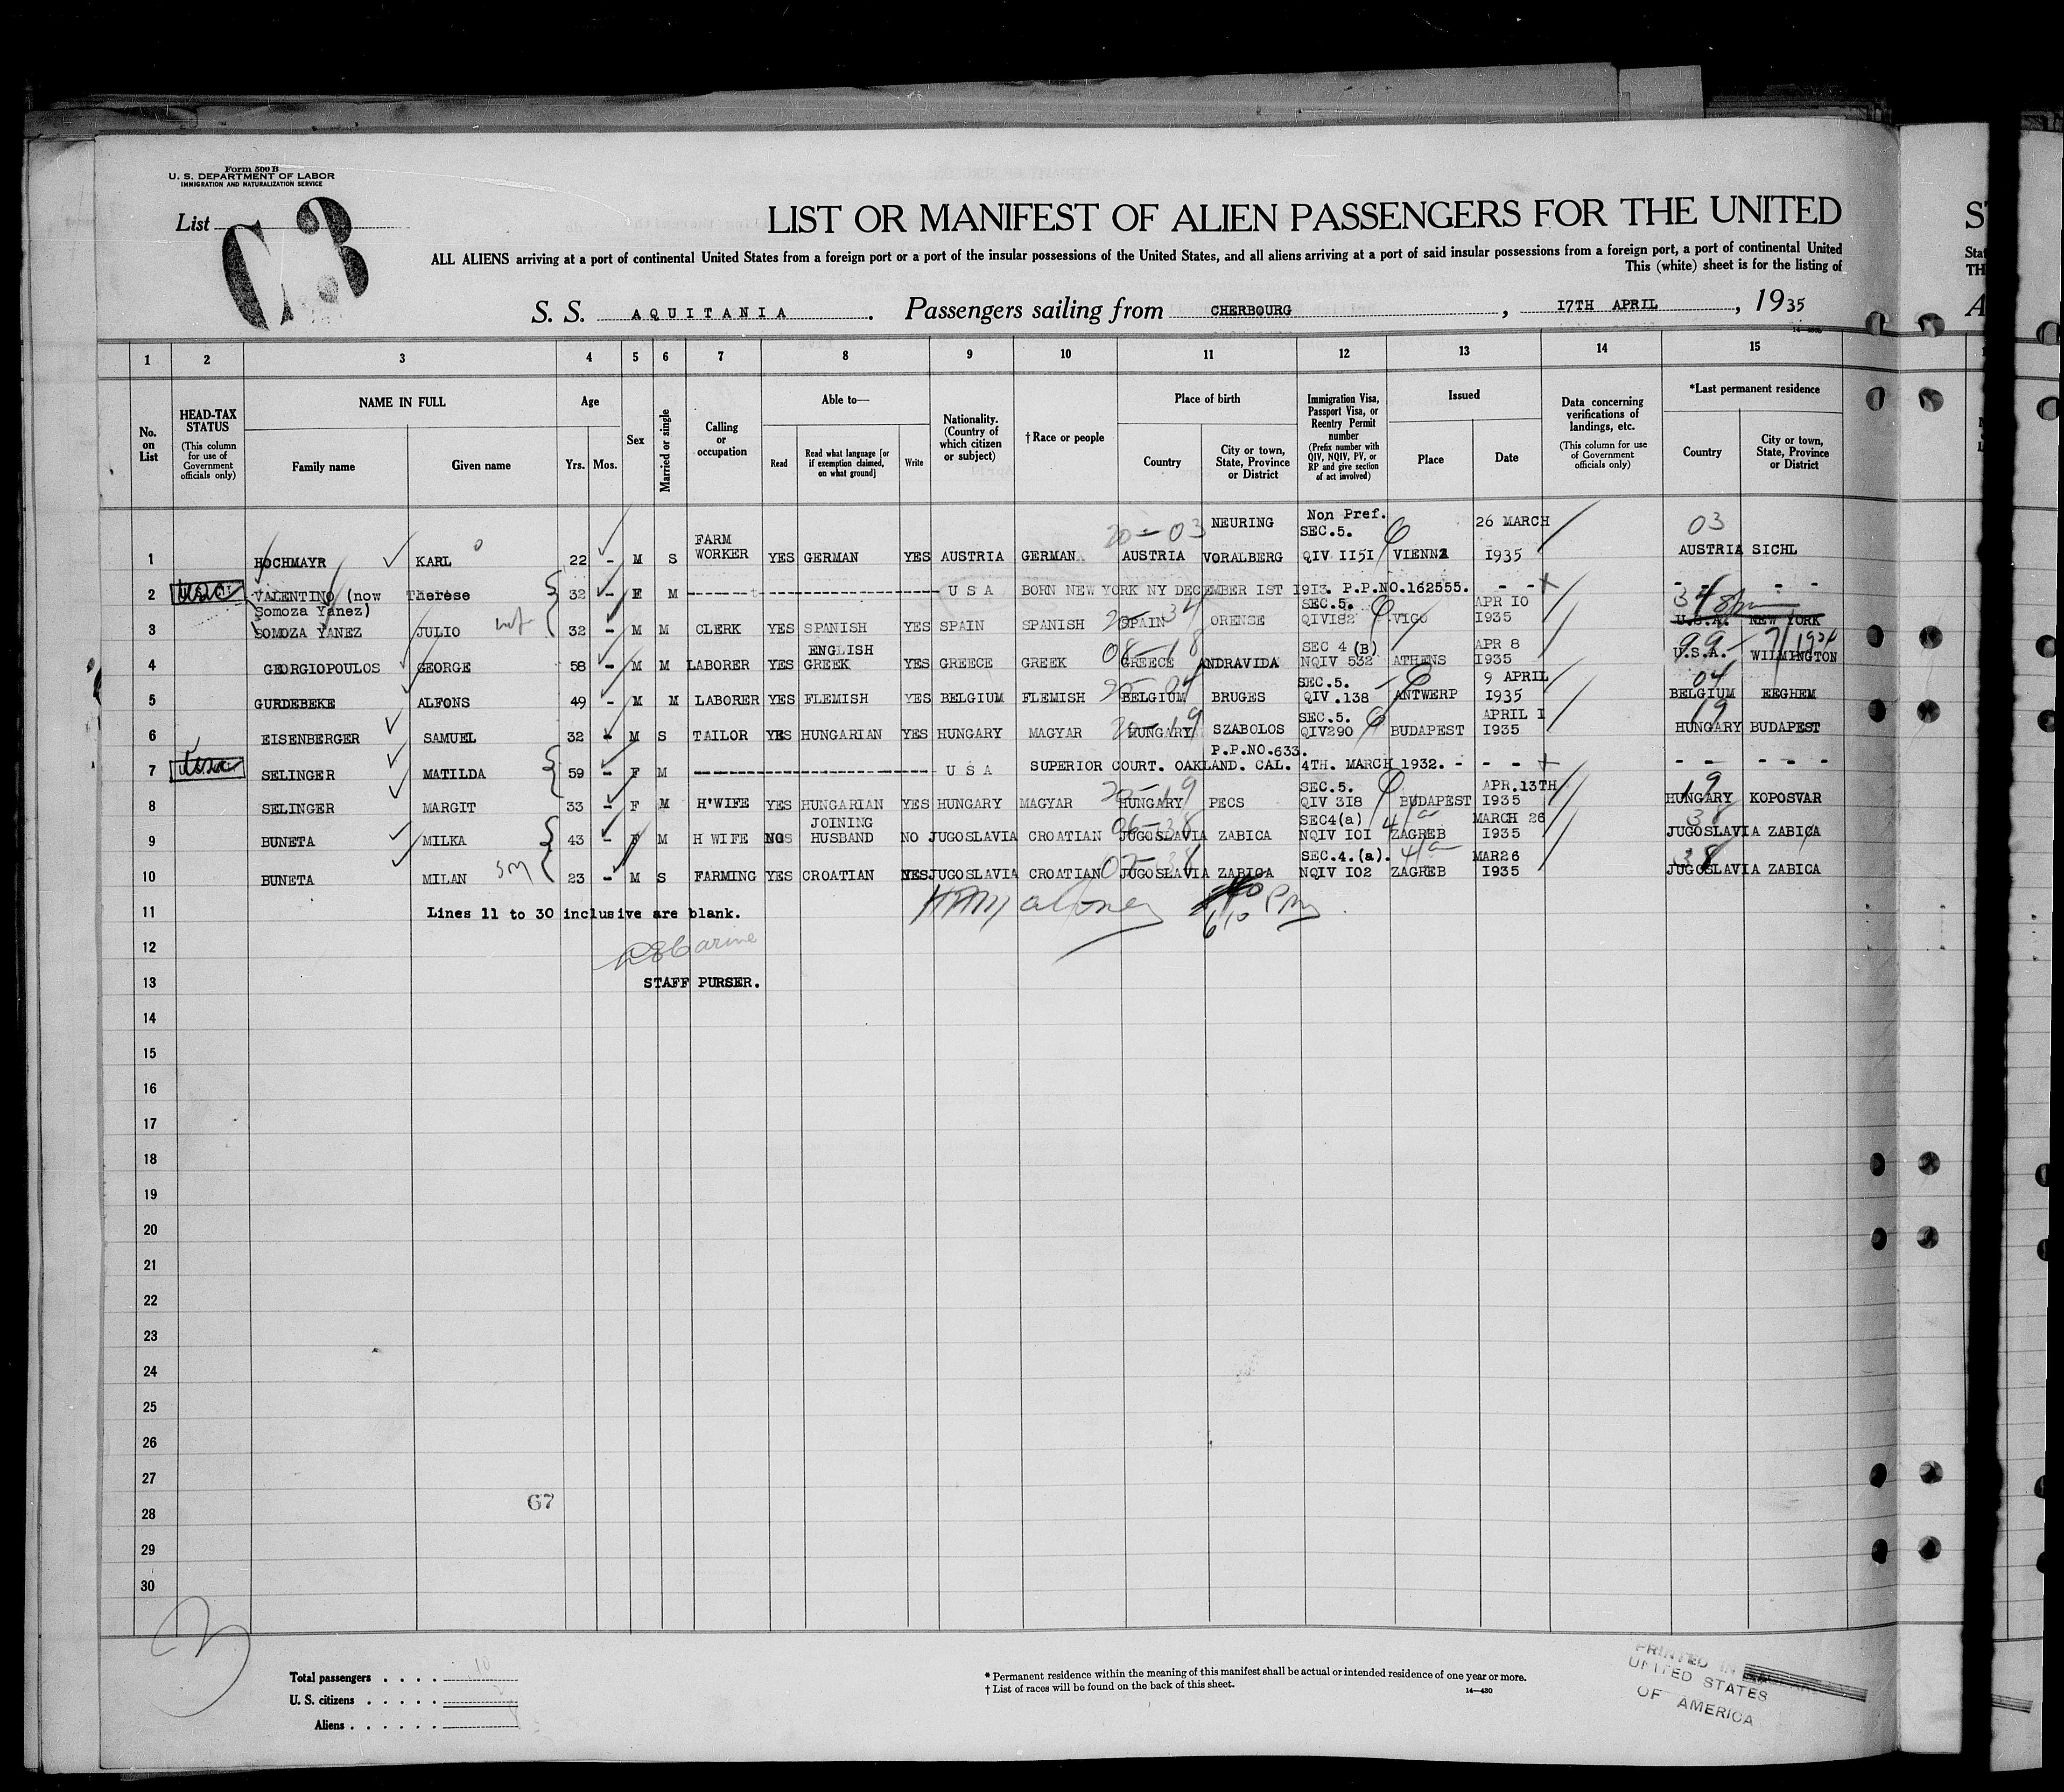 Form 500 B
U. S. DEPARTMENT OF LABOR
IMMIGRATION AND NATURALIZATION SERVICE
List C 3
LIST OR MANIFEST OF ALIEN PASSENGERS FOR THE UNITED
ALL ALIENS arriving at a port of continental United States from a foreign port or a port of the insular possessions of the United States, and all aliens arriving at a port of said insular possessions from a foreign port, a port of continental United
This (white) sheet is for the listing of
S. S. AQUITANIA. Passengers sailing from CHERBOURG, 17TH APRIL, 1935
1 2 3 4 5 6 7 8 9 10 11 12 13 14 15
No. on List
HEAD-TAX STATUS (This column for use of Government officials only)
NAME IN FULL Family name Given name
Age Yrs. Mos.
Sex
Married or single
Calling or occupation
Able to— Read Read what language [or if exemption claimed, on what ground] Write
Nationality. (Country of which citizen or subject)
†Race or people
Place of birth Country City or town, State, Province or District
Immigration Visa, Passport Visa, or Reentry Permit number (Prefix number with QIV, NQIV, PV, or RP and give section of act involved)
Issued Place Date
Data concerning verifications of landings, etc. (This column for use of Government officials only)
*Last permanent residence Country City or town, State, Province or District
1 HOCHMAYR KARL 22 - M S FARM WORKER YES GERMAN YES AUSTRIA GERMAN 20-03 AUSTRIA NEURING VORALBERG Non Pref. SEC.5. QIV 1151 VIENNA 26 MARCH 1935 03 AUSTRIA SICHL
2 USC VALENTINO (now Somoza Yanez) Therese 32 - F M - - - USA BORN NEW YORK NY DECEMBER 1ST 1913. P.P.NO.162555. - - - - - -
3 SOMOZA YANEZ JULIO 32 - M M CLERK YES SPANISH YES SPAIN SPANISH SPAIN ORENSE SEC.5. QIV182 VIGO APR 10 1935 34 U.S.A. NEW YORK
4 GEORGIOPOULOS GEORGE 58 - M M LABORER YES ENGLISH GREEK YES GREECE GREEK 08-18 GREECE ANDRAVIDA SEC 4 (B) NQIV 532 ATHENS APR 8 1935 99 U.S.A. WILMINGTON
5 GURDEBEKE ALFONS 49 - M M LABORER YES FLEMISH YES BELGIUM FLEMISH BELGIUM BRUGES SEC.5. QIV.138 ANTWERP 9 APRIL 1935 04 BELGIUM EEGHEM
6 EISENBERGER SAMUEL 32 - M S TAILOR YES HUNGARIAN YES HUNGARY MAGYAR 20-19 HUNGARY SZABOLOS SEC.5. QIV290 BUDAPEST APRIL 1 1935 19 HUNGARY BUDAPEST
7 USC SELINGER MATILDA 59 - F M - - - USA SUPERIOR COURT. OAKLAND. CAL. 4TH. MARCH 1932. P.P.NO.633. - - - - - -
8 SELINGER MARGIT 33 - F M H'WIFE YES HUNGARIAN YES HUNGARY MAGYAR 20-19 HUNGARY PECS SEC.5. QIV 318 BUDAPEST APR.13TH 1935 19 HUNGARY KOPOSVAR
9 BUNETA MILKA 43 - F M H WIFE NO JOINING HUSBAND NO JUGOSLAVIA CROATIAN 06-38 JUGOSLAVIA ZABICA SEC4(a) NQIV 101 4/a ZAGREB MARCH 26 1935 38 JUGOSLAVIA ZABICA
10 BUNETA MILAN 23 - M S FARMING YES CROATIAN YES JUGOSLAVIA CROATIAN JUGOSLAVIA ZABICA SEC.4.(a). NQIV 102 4/a ZAGREB MAR26 1935 38 JUGOSLAVIA ZABICA
11 Lines 11 to 30 inclusive are blank.
12
13 STAFF PURSER.
14
15
16
17
18
19
20
21
22
23
24
25
26
27
28 67
29
30
Total passengers . . . . 10
U. S. citizens . . . . .
Aliens . . . . . .
* Permanent residence within the meaning of this manifest shall be actual or intended residence of one year or more.
† List of races will be found on the back of this sheet.
14—430
PRINTED IN
UNITED STATES
OF AMERICA